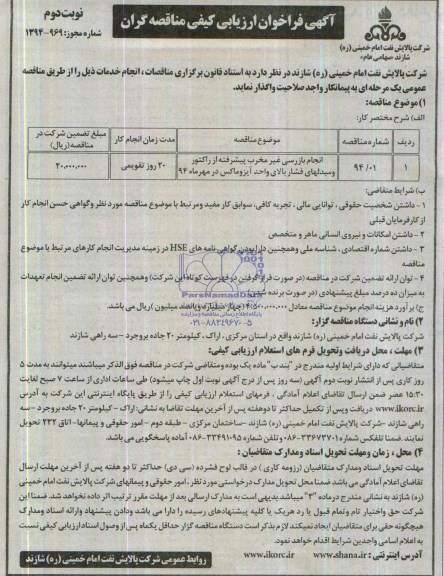 آگهی فراخوان ارزیابی کیفی مناقصه گران
نوبت دوم
شماره مجوز: ۹۶۹-۱۳۹۴
شرکت پالایش نفت امام خمینی (ره)
شازند «سهامی عام»
شرکت پالایش نفت امام خمینی (ره) شازند در نظر دارد به استناد قانون برگزاری مناقصات، انجام خدمات ذیل را از طریق مناقصه
عمومی یک مرحله ای به پیمانکار واجد صلاحیت واگذار نماید.
۱) موضوع مناقصه:
الف) شرح مختصر کار:
ردیف
شماره مناقصه
موضوع مناقصه
مدت زمان انجام کار
مبلغ تضمین شرکت در مناقصه (ریال)
۱
۹۴/۰۱
انجام بازرسی غیر مخرب پیشرفته از راکتور
ومبدلهای فشار بالای واحد آیزوماکس در مهرماه ۹۴
۲۰ روز تقویمی
۲۰,۰۰۰,۰۰۰
ب) شرایط متقاضی:
۱- داشتن شخصیت حقوقی، توانایی مالی، تجربه کافی، سوابق کار مفید ومرتبط با موضوع مناقصه مورد نظر وگواهی حسن انجام کار
از کارفرمایان قبلی
۲- داشتن امکانات و نیروی انسانی ماهر و متخصص
۳- داشتن شماره اقتصادی، شناسه ملی وهمچنین دارا بودن گواهی نامه های HSE در زمینه مدیریت انجام کارهای مرتبط با موضوع
مناقصه
۴- توان ارائه تضمین شرکت در مناقصه (در صورت قرار گرفتن در فهرست کوتاه این شرکت) وهمچنین توان ارائه تضمین انجام تعهدات
به میزان ده درصد مبلغ پیشنهادی (در صورت برنده شدن)
ج) برآورد هزینه انجام موضوع مناقصه معادل ۴,۵۰۰,۰۰۰,۰۰۰ (چهار میلیارد و پانصد میلیون) ریال می باشد.
ParsNamadData
پایگاه اطلاع رسانی مناقصه و مزایده
۰۲۱-۸۸۳۴۹۶۷۰-۵
۲) نام و نشانی دستگاه مناقصه گزار:
شرکت پالایش نفت امام خمینی (ره) شازند واقع در استان مرکزی، اراک، کیلومتر ۲۰ جاده بروجرد -سه راهی شازند
۳) مهلت، محل دریافت وتحویل فرم های استعلام ارزیابی کیفی:
متقاضیانی که دارای شرایط اولیه مندرج در "بند ب" ماده یک بوده ومتقاضی شرکت در مناقصه فوق الذکر میباشند میتوانند به مدت ۵
روز کاری پس از انتشار نوبت دوم آگهی (سه روز پس از درج آگهی نوبت اول چاپ میشود) طی ساعات اداری از ساعت ۷ صبح لغایت
۱۵:۳۰ عصر ضمن ارسال تقاضای اعلام آمادگی، فرمهای استعلام ارزیابی کیفی را از طریق پایگاه اینترنتی این شرکت به آدرس
www.ikorc.ir دریافت وپس از تکمیل حداکثر تا دوهفته پس از آخرین مهلت تقاضا به نشانی: اراک - کیلومتر ۲۰ جاده بروجرد -سه
راهی شازند -شرکت پالایش نفت امام خمینی (ره) شازند -ساختمان مرکزی - طبقه دوم - امور حقوقی و پیمانها- اتاق ۲۳۲ تحویل
نمایند. ضمنا تلفکس شماره ۳۳۶۷۳۷۰۱-۰۸۶ و تلفن شماره ۹۵-۳۳۴۹۱۰-۰۸۶ آماده پاسخگویی می باشد.
۴) محل، زمان ومهلت تحویل اسناد ومدارک متقاضیان:
مهلت تحویل اسناد ومدارک متقاضیان (رزومه کاری) در قالب لوح فشرده (سی دی) حداکثر تا دو هفته پس از آخرین مهلت ارسال
تقاضای اعلام آمادگی می باشد ضمنا محل تحویل مدارک درخواستی مورد نظر، امور حقوقی و پیمانهای شرکت پالایش نفت امام خمینی
(ره) شازند به نشانی مندرج درماده "۳" میباشد بدیهی است به مدارک ارسالی بعد از مهلت مقرر ترتیب اثر داده نخواهد شد. ضمنا این
شرکت حق واختیار تام و تمام قبول یا رد هریک یا کلیه پیشنهادهای رسیده را دارا می باشد ودادن پیشنهاد وارائه اسناد ومدارک
هیچگونه حقی برای متقاضیان ایجاد نمیکند. لازم بذکر است دستگاه مناقصه گزار حداقل یکماه پس از وصول اسناد ارزیابی کیفی نسبت
به اعلام اسامی واجدین شرایط اقدام خواهد نمود.
آدرس اینترنتی: www.shana.ir و www.ikorc.ir
روابط عمومی شرکت پالایش نفت امام خمینی (ره) شازند